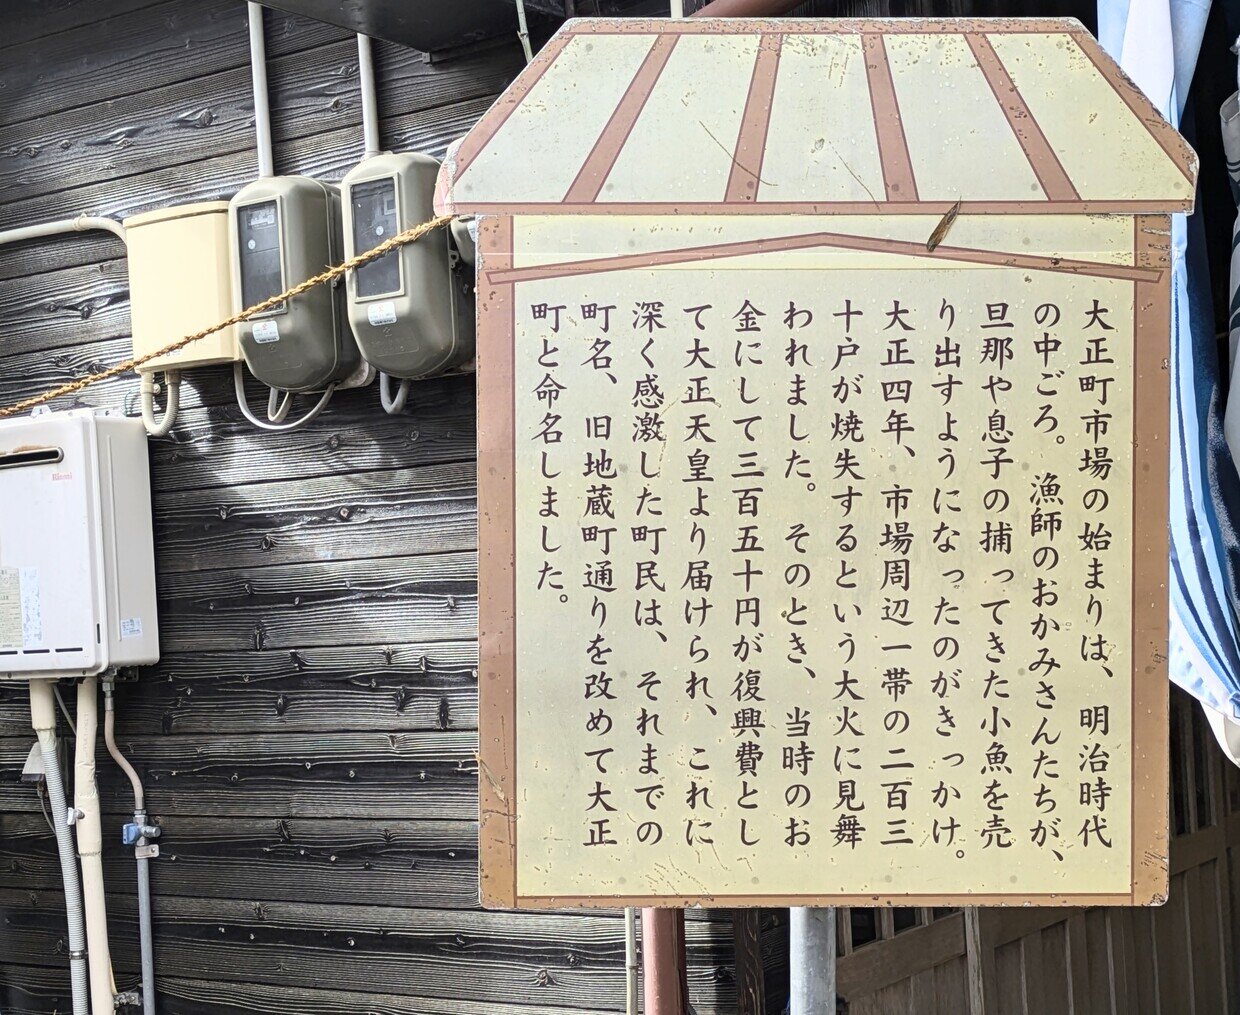 大正町市場の始まりは、明治時代
の中ごろ。漁師のおかみさんたちが、
旦那や息子の捕ってきた小魚を売
り出すようになったのがきっかけ。
大正四年、市場周辺一帯の二百三
十戸が焼失するという大火に見舞
われました。そのとき、当時のお
金にして三百五十円が復興費とし
て大正天皇より届けられ、これに
深く感激した町民は、それまでの
町名、旧地蔵町通りを改めて大正
町と命名しました。
Rinnai